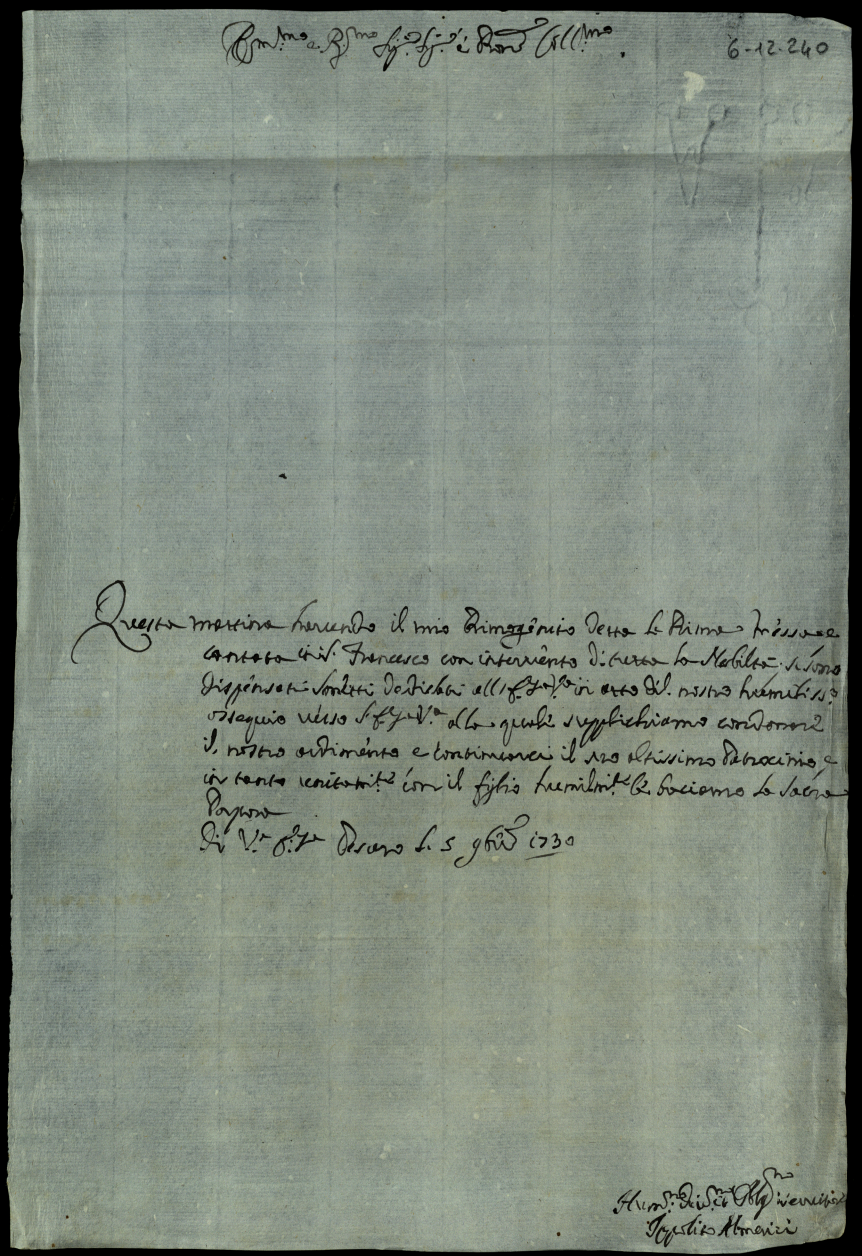 Em.mo e R.mo Sig.r Sig.r e Pron Coll.mo
6-12.240
Questa mattina havendo il mio Primogenito detta la Prima Messa e
cantata in S. Francesco con intervento di tutta la Nobiltà, si sono
dispensati Sonetti dedicati all' E.za V.a in atto del nostro humiliss.o
ossequio verso l'E.za V.a alla quale supplichiamo condonare
il nostro ardimento e continuarci il suo altissimo Patrocinio, e
in tanto unitam.te con il figlio humilm.te le baciamo la Sacra
Porpora
Di V.a E.za Pesaro li 5 9bre 1730
Hum.mo Div.mo Obl.mo Servitore
Ippolito Almerici